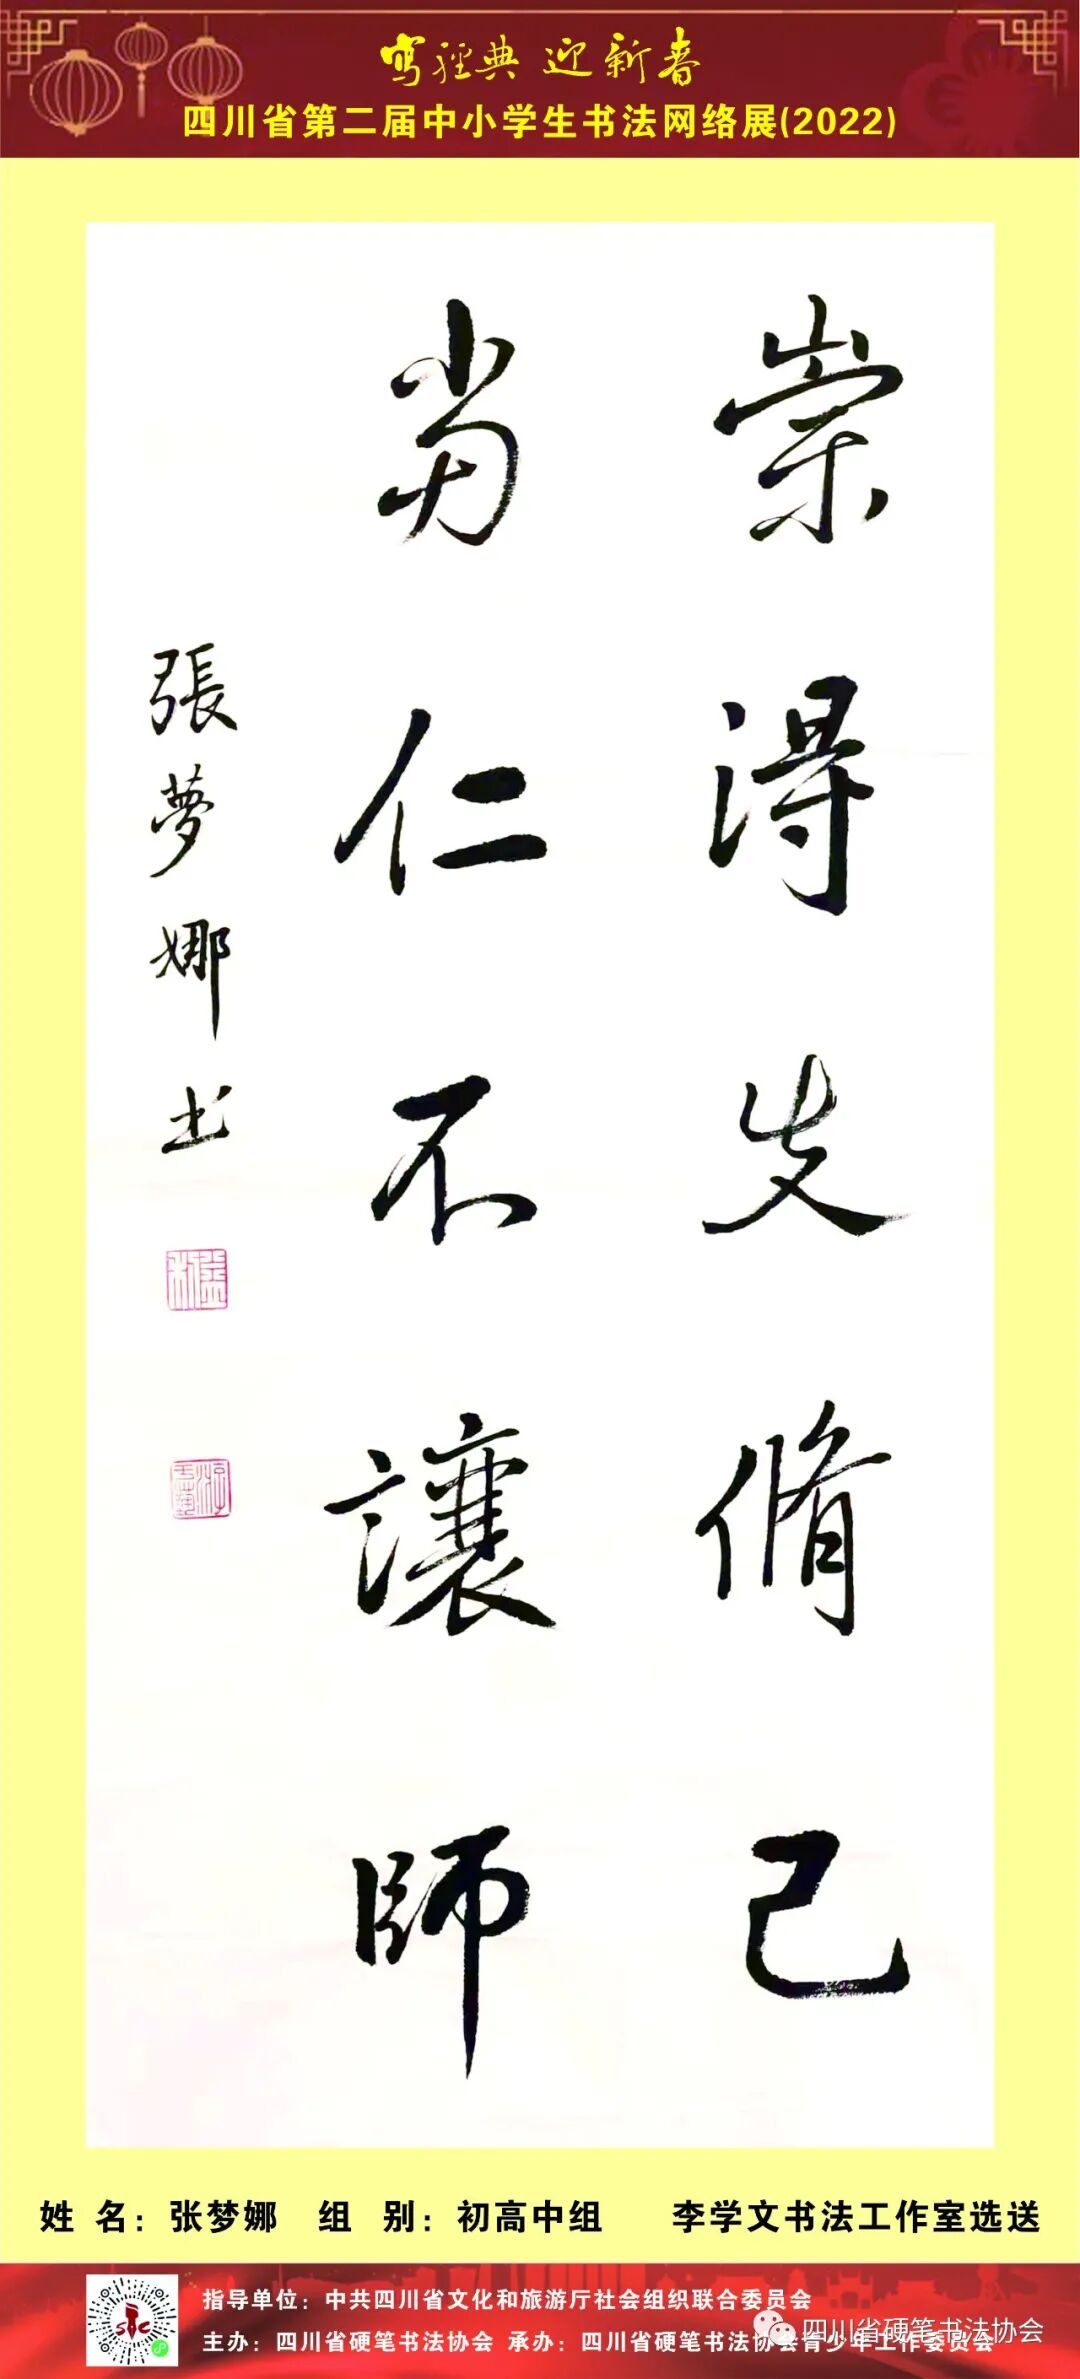 写经典 迎新春
四川省第二届中小学生书法网络展(2022)
崇淂脩己
當仁不讓師
張夢娜书
姓 名：张梦娜 组 别：初高中组 李学文书法工作室选送
指导单位：中共四川省文化和旅游厅社会组织联合委员会
主办：四川省硬笔书法协会 承办：四川省硬笔书法协会青少年工作委员会
四川省硬笔书法协会